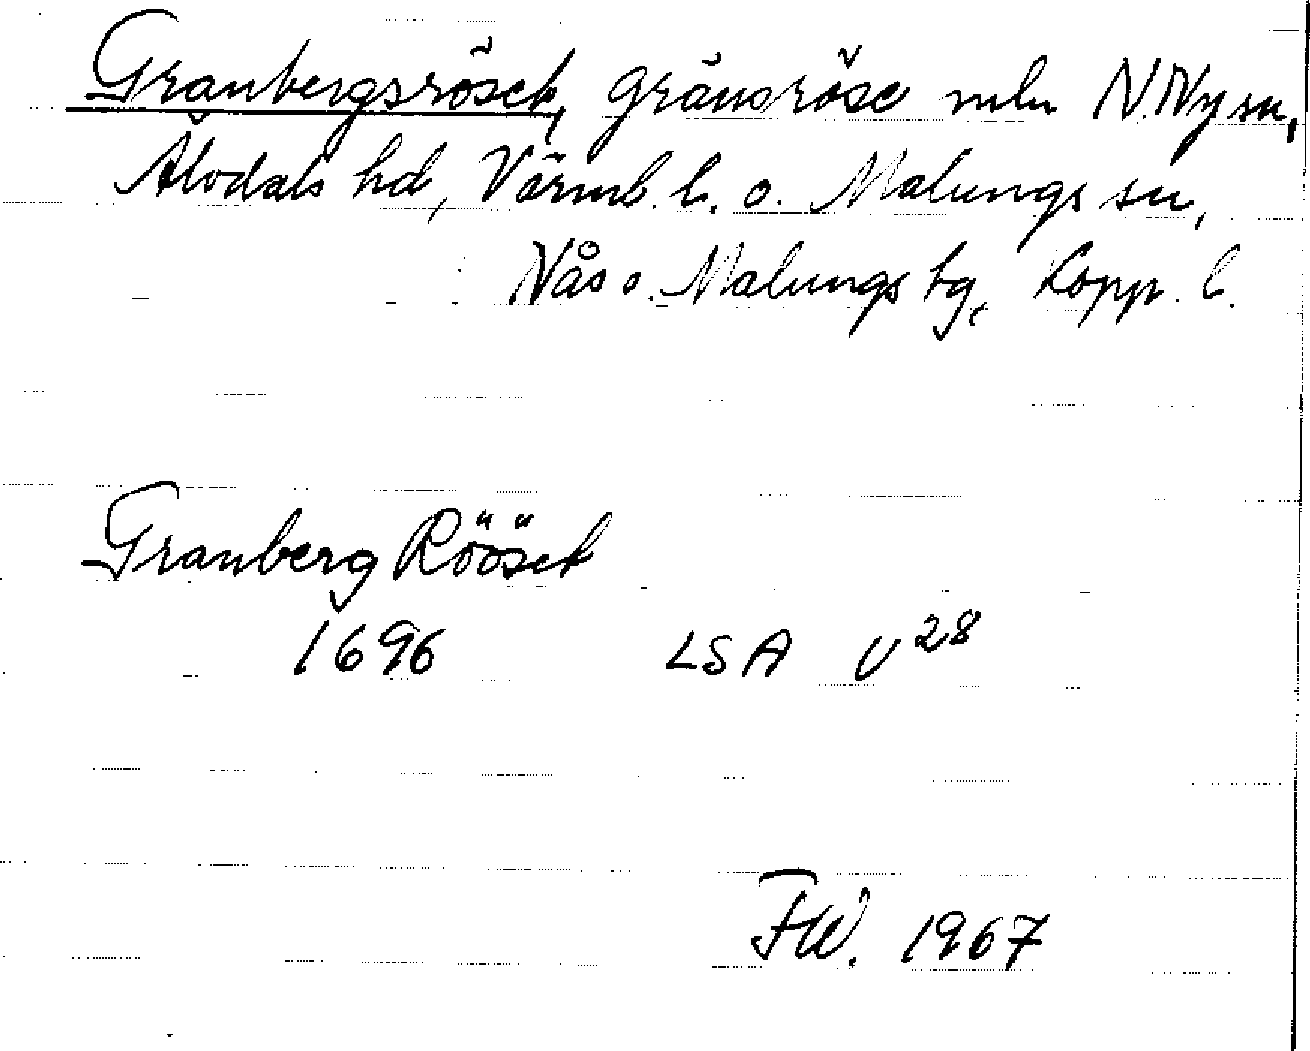 Granbergsröset, gränsröse mln N.Ny sn,
Älvdals hd, Värml. l. o. Malungs sn,
Nås o. Malungs tg, Kopp. l.
Granberg Rööset
1696 LSA U28
FW. 1967